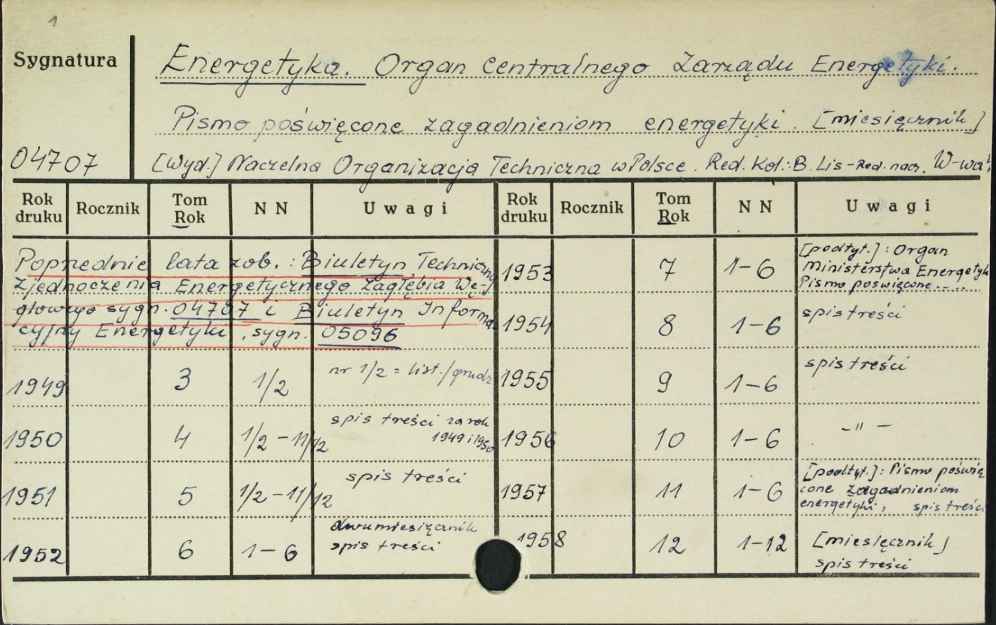 1
Sygnatura
Energetyka. Organ Centralnego Zarządu Energetyki.
Pismo poświęcone zagadnieniom energetyki. [miesięcznik]
04707
[Wyd.] Naczelna Organizacja Techniczna w Polsce. Red. Kol.: B. Lis - Red. nacz. W-wa
Rok druku Rocznik Tom Rok NN Uwagi Rok druku Rocznik Tom Rok NN Uwagi
Poprzednie lata zob.: Biuletyn Techniczny
Zjednoczenia Energetycznego Zagłębia Wę-
glowego sygn. 04707 i Biuletyn Informa-
cyjny Energetyki, sygn. 05096
1949 3 1/2 nr 1/2 = list./grudz
1950 4 1/2 - 11/12 spis treści za rok
1949 i 1950
1951 5 1/2 - 11/12 spis treści
1952 6 1-6 dwumiesięcznik
spis treści
1953 7 1-6 [podtyt.]: Organ
Ministerstwa Energetyki
Pismo poświęcone.....
1954 8 1-6 spis treści
1955 9 1-6 spis treści
1956 10 1-6 -"-
1957 11 1-6 [podtyt.]: Pismo poświę
cone zagadnieniom
energetyki, spis treści
1958 12 1-12 [miesięcznik]
spis treści